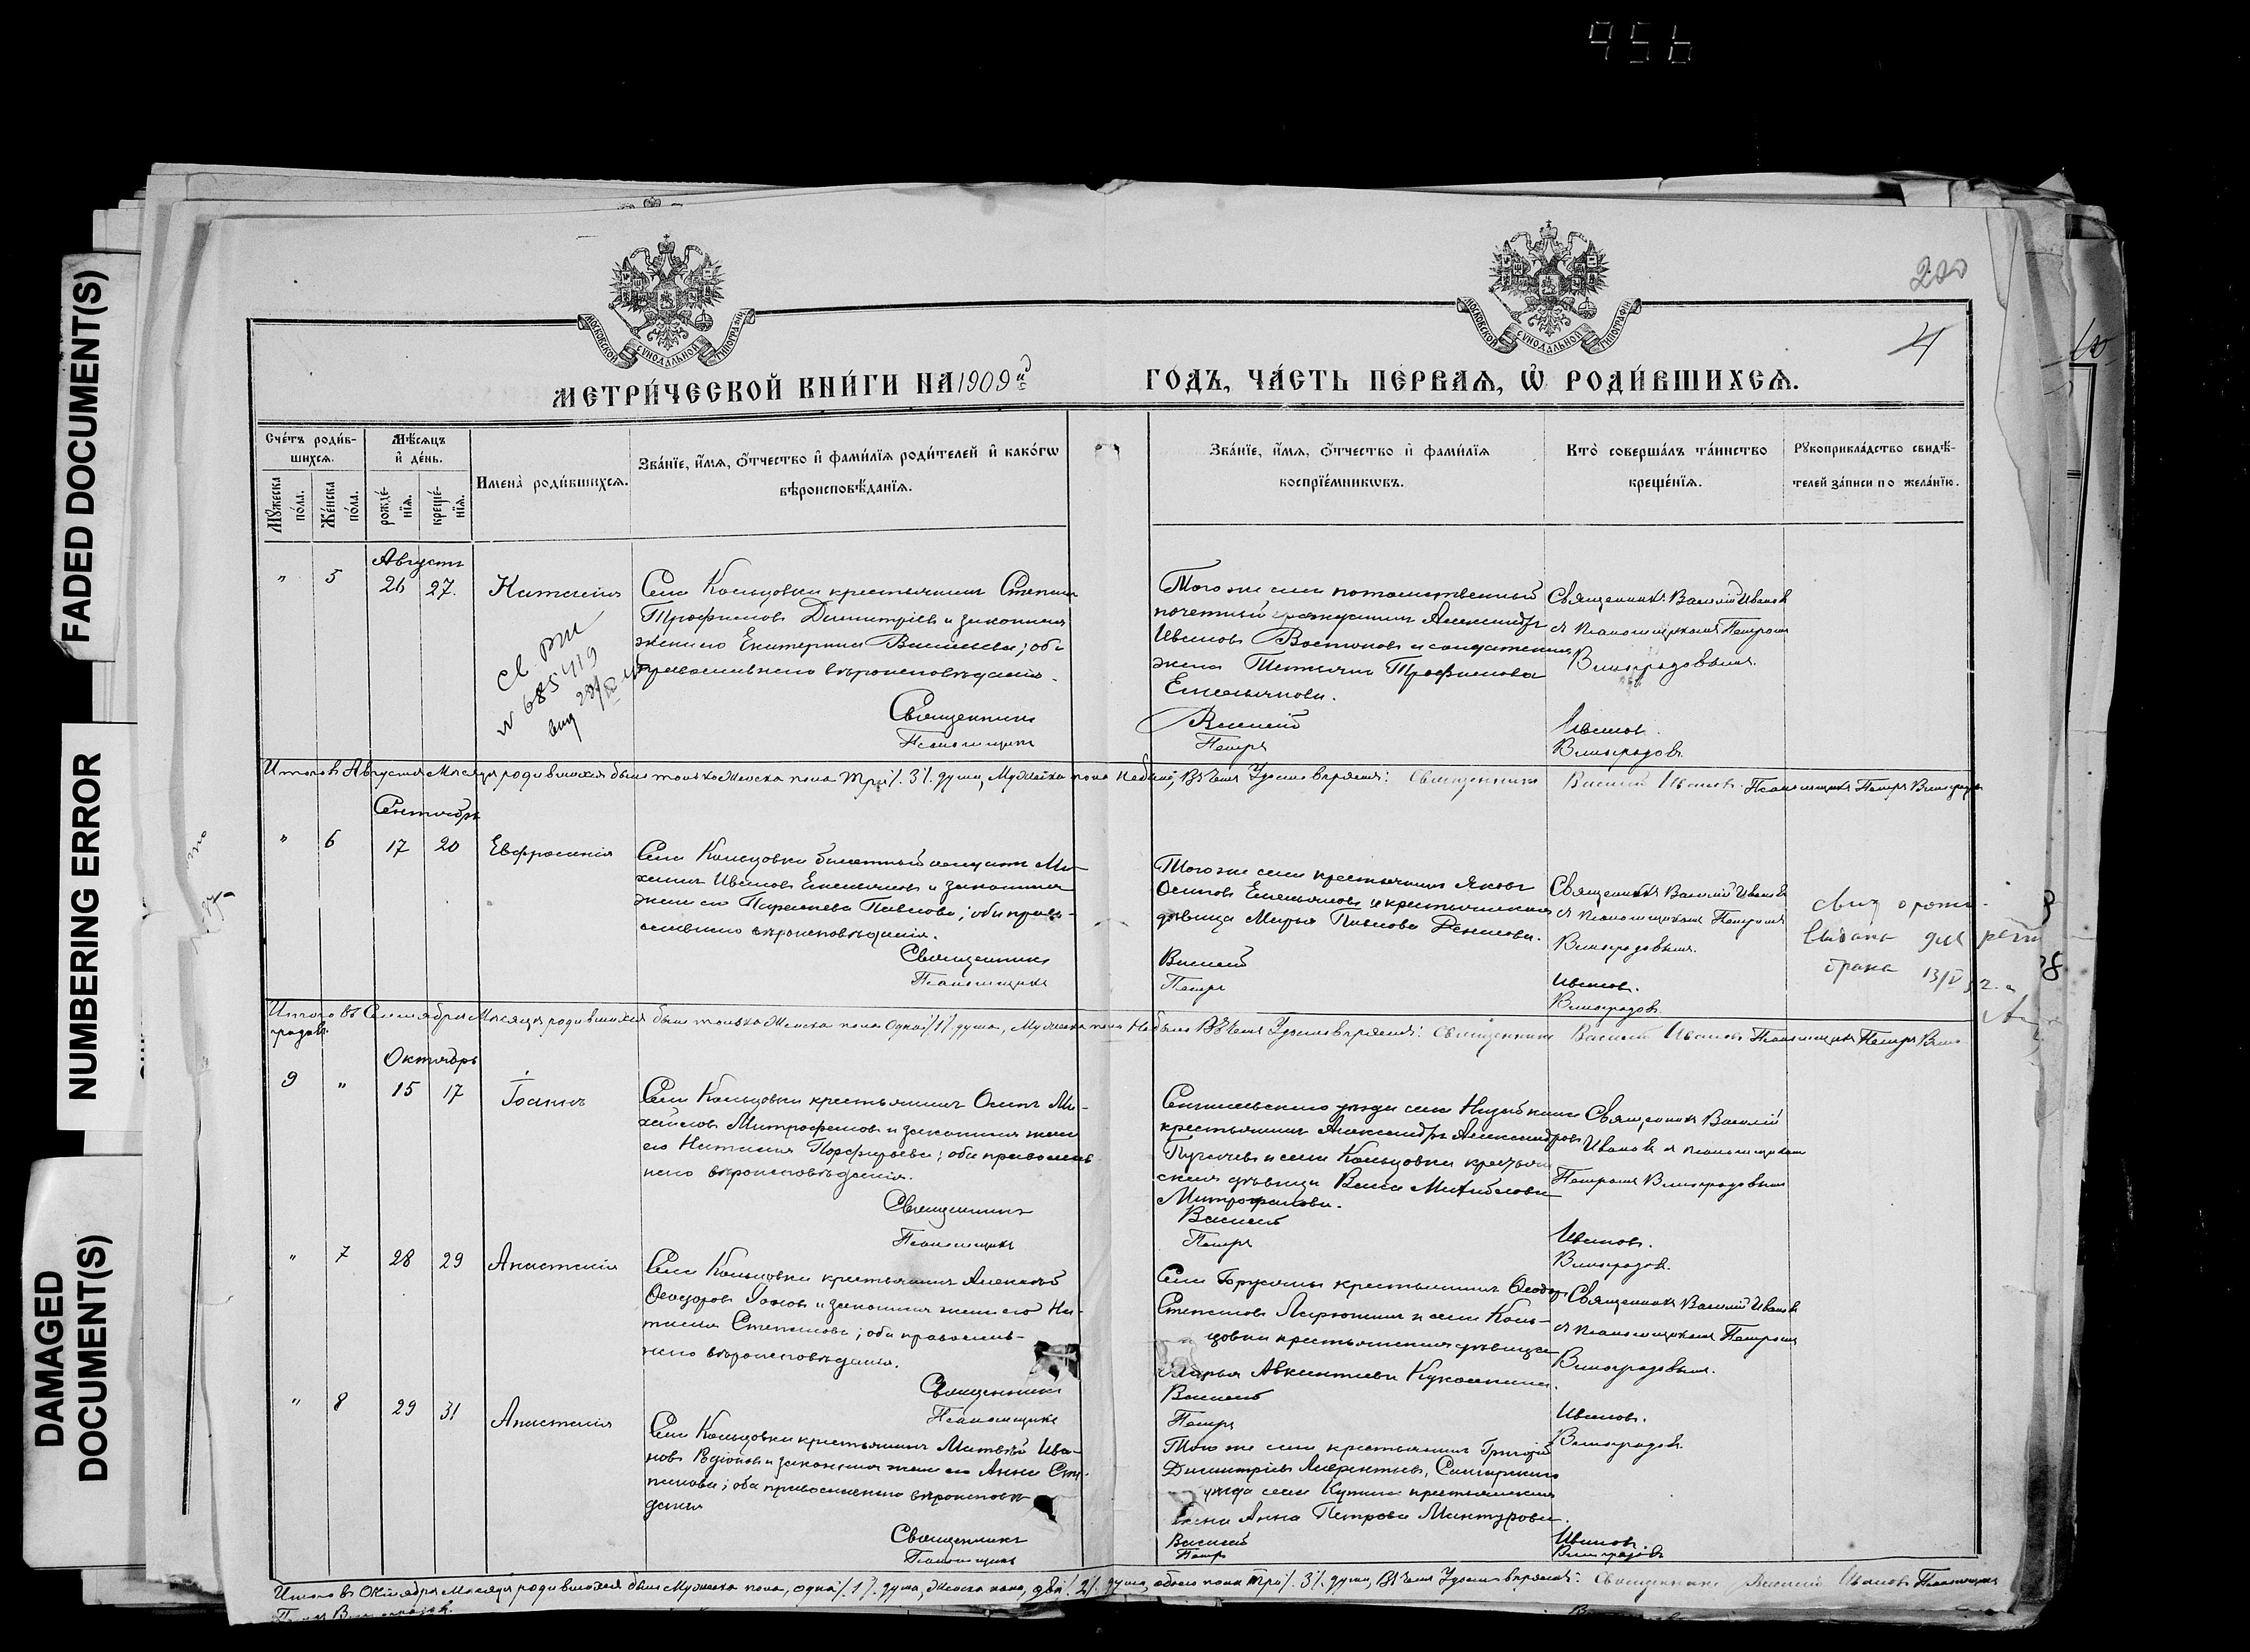 956
FADED DOCUMENT(S)
NUMBERING ERROR
DAMAGED
DOCUMENT(S)
200
4
МОСКОВСКОЙ СѴНОДАЛЬНОЙ ТИПОГРАФІИ
МОСКОВСКОЙ СѴНОДАЛЬНОЙ ТИПОГРАФІИ
МЕТРИ́ЧЕСКОЙ КНИ́ГИ НА 1909й ГОДЪ, ЧА́СТЬ ПЕРВАЯ, Ѡ РОДИ́ВШИХСЯ.
Сче́тъ роди́в-
шихся.
Мѣ́сяцъ
и де́нь.
Мꙋ́жеска
по́ла.
Же́нска
по́ла.
рожде́-
нїя.
креще́-
нїя.
Имена̀ роди́вшихся.
Зва́нїе, и́мя, ѻ́тчество и фами́лїя роди́телей и како́гѡ
вѣроисповѣ́данїя.
Зва́нїе, и́мя, ѻ́тчество и фами́лїя
воспрїе́мникѡвъ.
Кто̀ соверша́лъ та́инство
креще́нїя.
Рꙋкоприкла́дство свидѣ́-
телей за́писи по жела́нїю.
Августъ
" 5 26 27. Наталія
Села Кольцовки крестьянинъ Степанъ
Трофимовъ Димитріевъ и законная
жена его Екатерина Васильева; оба
православнаго вѣроисповѣданія.
Священникъ
Псаломщикъ
Того же села потомственный
почетный гражданинъ Александръ
Ивановъ Востоковъ и солдатская
жена Татьяна Трофимова
Емельянова.
Василій
Петръ
Священникъ Василій Ивановъ
съ псаломщикомъ Петромъ
Виноградовымъ.
Ивановъ.
Виноградовъ.
Итого въ Августѣ мѣсяцѣ родившихся было только женска пола три /. 3 /. души, мужеска пола не было, въ чемъ удостовѣряемъ: Священникъ Василій Ивановъ. Псаломщикъ Петръ Виноградовъ
Сентябрь
" 6 17 20 Евфросинія
Села Кольцовки билетный солдатъ Ми-
хаилъ Ивановъ Емельяновъ и законная
жена его Параскева Павлова; оба право-
славнаго вѣроисповѣданія.
Священникъ
Псаломщикъ
Того же села крестьянинъ Яковъ
Осиповъ Емельяновъ и крестьянская
дѣвица Марья Павлова Денисова.
Василій
Петръ
Священникъ Василій Ивановъ
съ псаломщикомъ Петромъ
Виноградовымъ.
Ивановъ.
Виноградовъ.
Итого въ Сентябрѣ мѣсяцѣ родившихся было только женска пола одна /. 1 /. душа, мужеска пола не было въ чемъ удостовѣряемъ: Священникъ Василій Ивановъ Псаломщикъ Петръ Вино-
градовъ.
Октябрь
9 " 15 17 Іоаннъ
Села Кольцовки крестьянинъ Осипъ Ми-
хайловъ Митрофановъ и законная жена
его Наталія Порфирьева; оба православ-
наго вѣроисповѣданія.
Священникъ
Псаломщикъ
крестьянинъ Александръ Александровъ
Пугачевъ и села Кольцовки крестьян-
ская дѣвица Васса Михайлова
Митрофанова.
Василій
Петръ
Священникъ Василій
Ивановъ съ псаломщикомъ
Петромъ Виноградовымъ
Ивановъ.
Виноградовъ.
" 7 28 29 Анастасія
Села Кольцовки крестьянинъ Алексѣй
Ѳеодоровъ и законная жена его На-
талія Степанова; оба православ-
наго вѣроисповѣданія.
Священникъ
Псаломщикъ
Села крестьянинъ Ѳеодоръ
Степановъ и села Коль-
цовки крестьянская дѣвица
Марья Авксентьева
Василій
Петръ
Священникъ Василій Ивановъ
съ псаломщикомъ Петромъ
Виноградовымъ.
Ивановъ.
Виноградовъ.
" 8 29 31 Анастасія
Села Кольцовки крестьянинъ Матвѣй Ива-
новъ Родіоновъ и законная жена его Анна Сте-
панова; оба православнаго вѣроисповѣ-
данія
Священникъ
Псаломщикъ
Того же села крестьянинъ Григорій
Димитріевъ
уѣзда села крестьянская
жена Анна Петрова
Василій
Петръ
Ивановъ
Виноградовъ
Итого въ Октябрѣ мѣсяцѣ родившихся было мужеска пола, одна /. 1 /. душа, женска пола, двѣ /. 2 /. души, обоего пола три /. 3 /. души, въ чемъ удостовѣряемъ: Священникъ Василій Ивановъ Псаломщикъ
Петръ Виноградовъ.